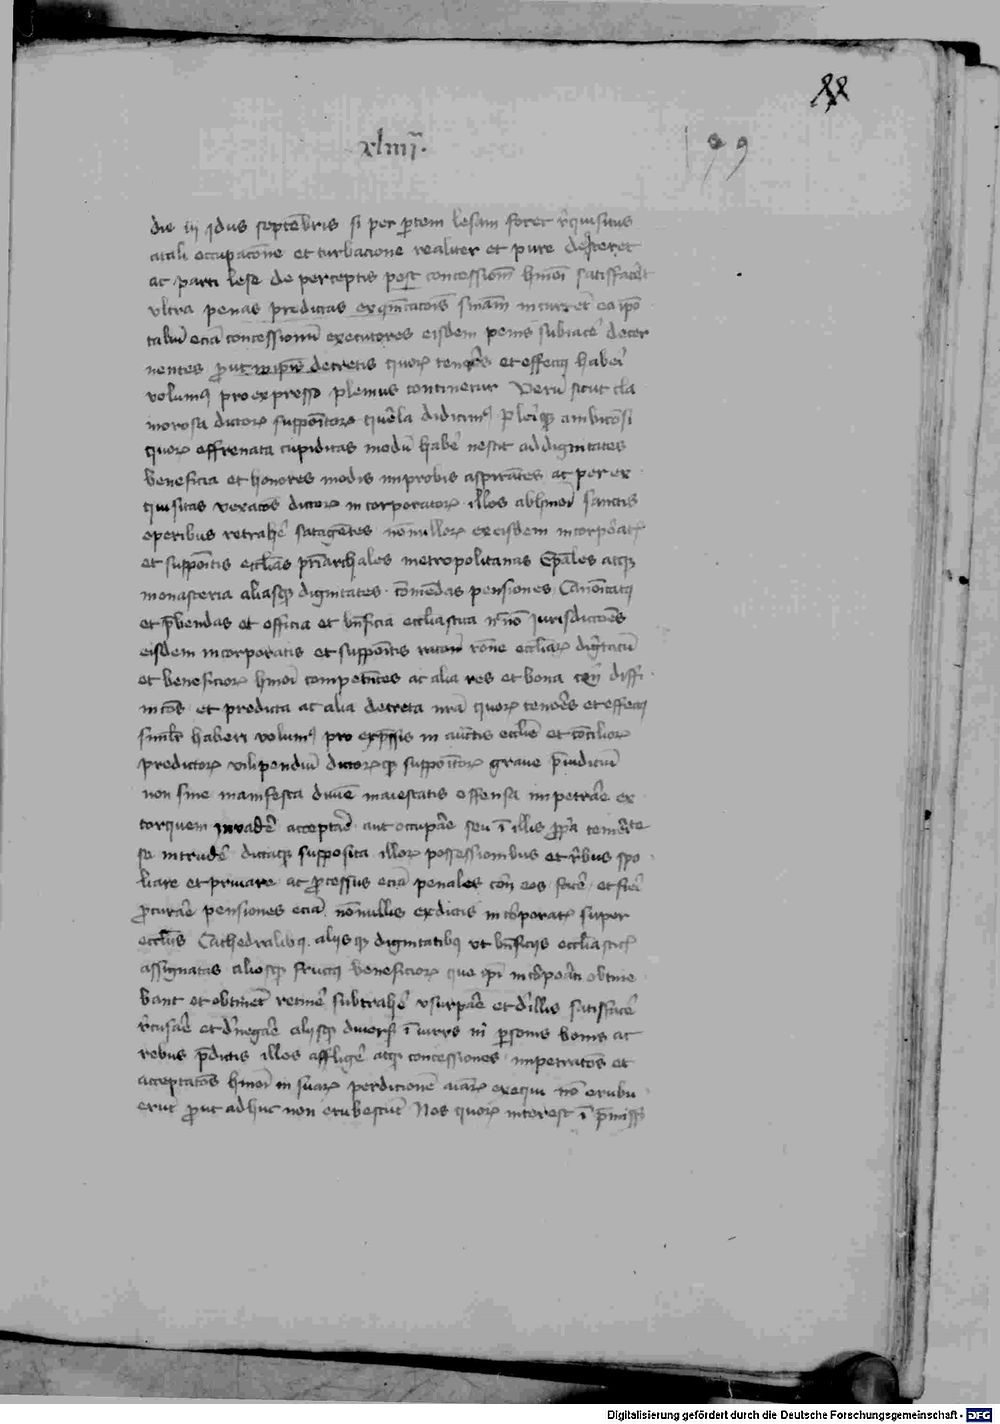 xliiij.
199
die iij ydus septēbris si per ptem lesam foret rquisitus
atali occupacōne et turbacione realiter et pure desisteret
ac parti lese de perceptis post concessionē hmoī satisfacēt
vltra penas predictas excōicatois snīam incurrēt eo ipo
taliū eciā concessionū executores eisdem penis subiacē decer
nentes put in ipis decretis quor tenores et effectus haberi
volumus pro expresso plenius continetur Verū sicut cla
morosa dictor suppoitor querla didicimus pleriqz ambicōsi
quor effrenata cupiditas modū habē nescit ad dignitates
beneficia et honores modis improbis aspirātes ac per ex
quisitas vexatōes dictor incorporator illos ab hmoī sanctis
operibus retrahē satagētes nōnullor ex eisdem incorporat
et suppoitis ecclias priarchales metropolitanas Epales atqz
monasteria aliasqz dignitates comēdas pensiones Canonicatus
et pbendas et officia et bnficia ecclīastica necnō Jurisdictōes
eisdem incorporatis et suppoitis racōne ecclīar dignitatū
et beneficior hmoī competētes ac alia res et bona cōn diffi
nicōes et predicta ac alia decreta nrā quor tenores et effectus
similr haberi volumus pro expressis in auctis ecclīe et conciliōr
predictor vilipendiū dictorqz suppoitor graue piudiciū
non sine manifesta diuīe maiestatis offensa impetrāre ex
torquem inuadē acceptāre aut occupāre seu ī illis ppa temeritate
se intrudē dictaqz supposita illor possessionibus et rbus spo
liare et priuare ac pcessus eciā penales con eos facē et fieri
pcurāre pensiones eciā nōnullis ex dictis incorporat super
eccliis Cathedralibus aliisqz dignitatibus vt bnficiis ecclīastic
assignatas aliosqz fructus beneficior que ipi incorporati obtine
bant et obtinēt retinē subtrahē vsurpāre et de illis satisfacē
rcusāre et denegāre aliisqz diuersis ī iuris in personis bonis ac
rebus pdictis illos affligē atqz concessiones impetratōes et
acceptatōes hmoī in suar perdicionē aiar exequi nō erubu
erut put adhuc non erubescūt Nos quor interest ī pmissis
Digitalisierung gefördert durch die Deutsche Forschungsgemeinschaft - DFG